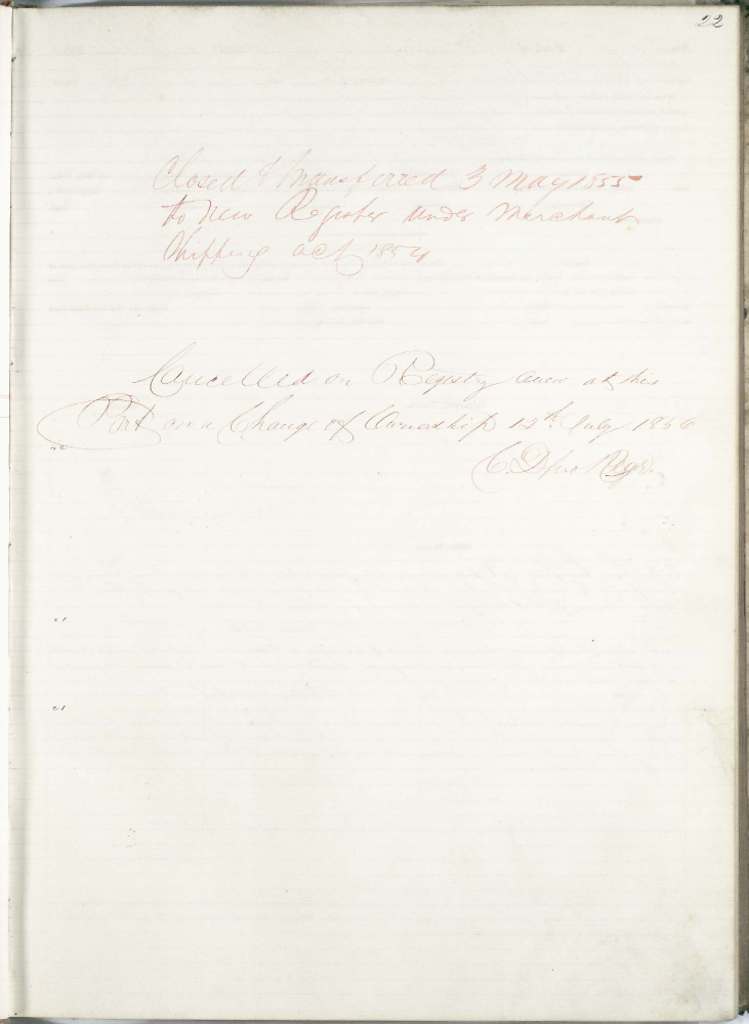 22
Closed & Transferred 3 May 1855
to new Register under Merchant
Shipping Act 1854
Cancelled on Registry anew at this
Port on a Change of Ownership 12th July 1856
C.